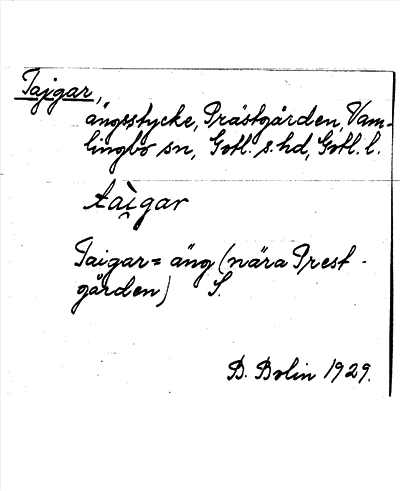 Tajgar,
ängsstycke, Prästgården, Vam-
lingbo sn, Gotl. s. hd, Gotl. l.
taì̯gar
Taigar = äng (nära Prest-
gården) S.
B. Bolin 1929.